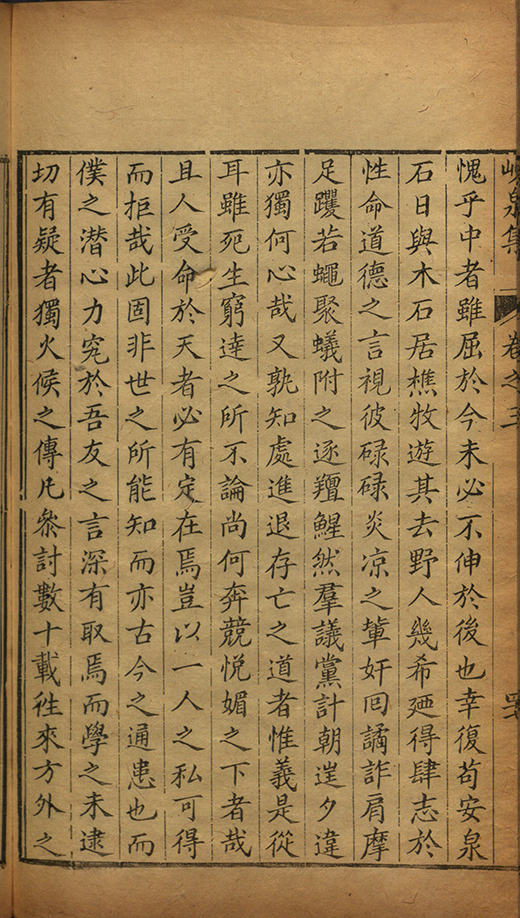 峴泉集
卷之三
愧乎中者雖屈於今未必不伸於後也幸復苟安泉
石日與木石居樵牧遊其去野人幾希廼得肆志於
性命道德之言視彼碌碌炎凉之軰奸囘譎詐肩摩
足躩若蠅聚蟻附之逐羶鯹然羣議黨計朝逞夕違
亦獨何心哉又孰知處進退存亡之道者惟義是從
耳雖死生窮達之所不論尚何奔競悅媚之下者哉
且人受命於天者必有定在焉豈以一人之私可得
而拒哉此固非世之所能知而亦古今之通患也而
僕之潛心力究於吾友之言深有取焉而學之未逮
切有疑者獨火候之傳凡叅討數十載徃來方外之